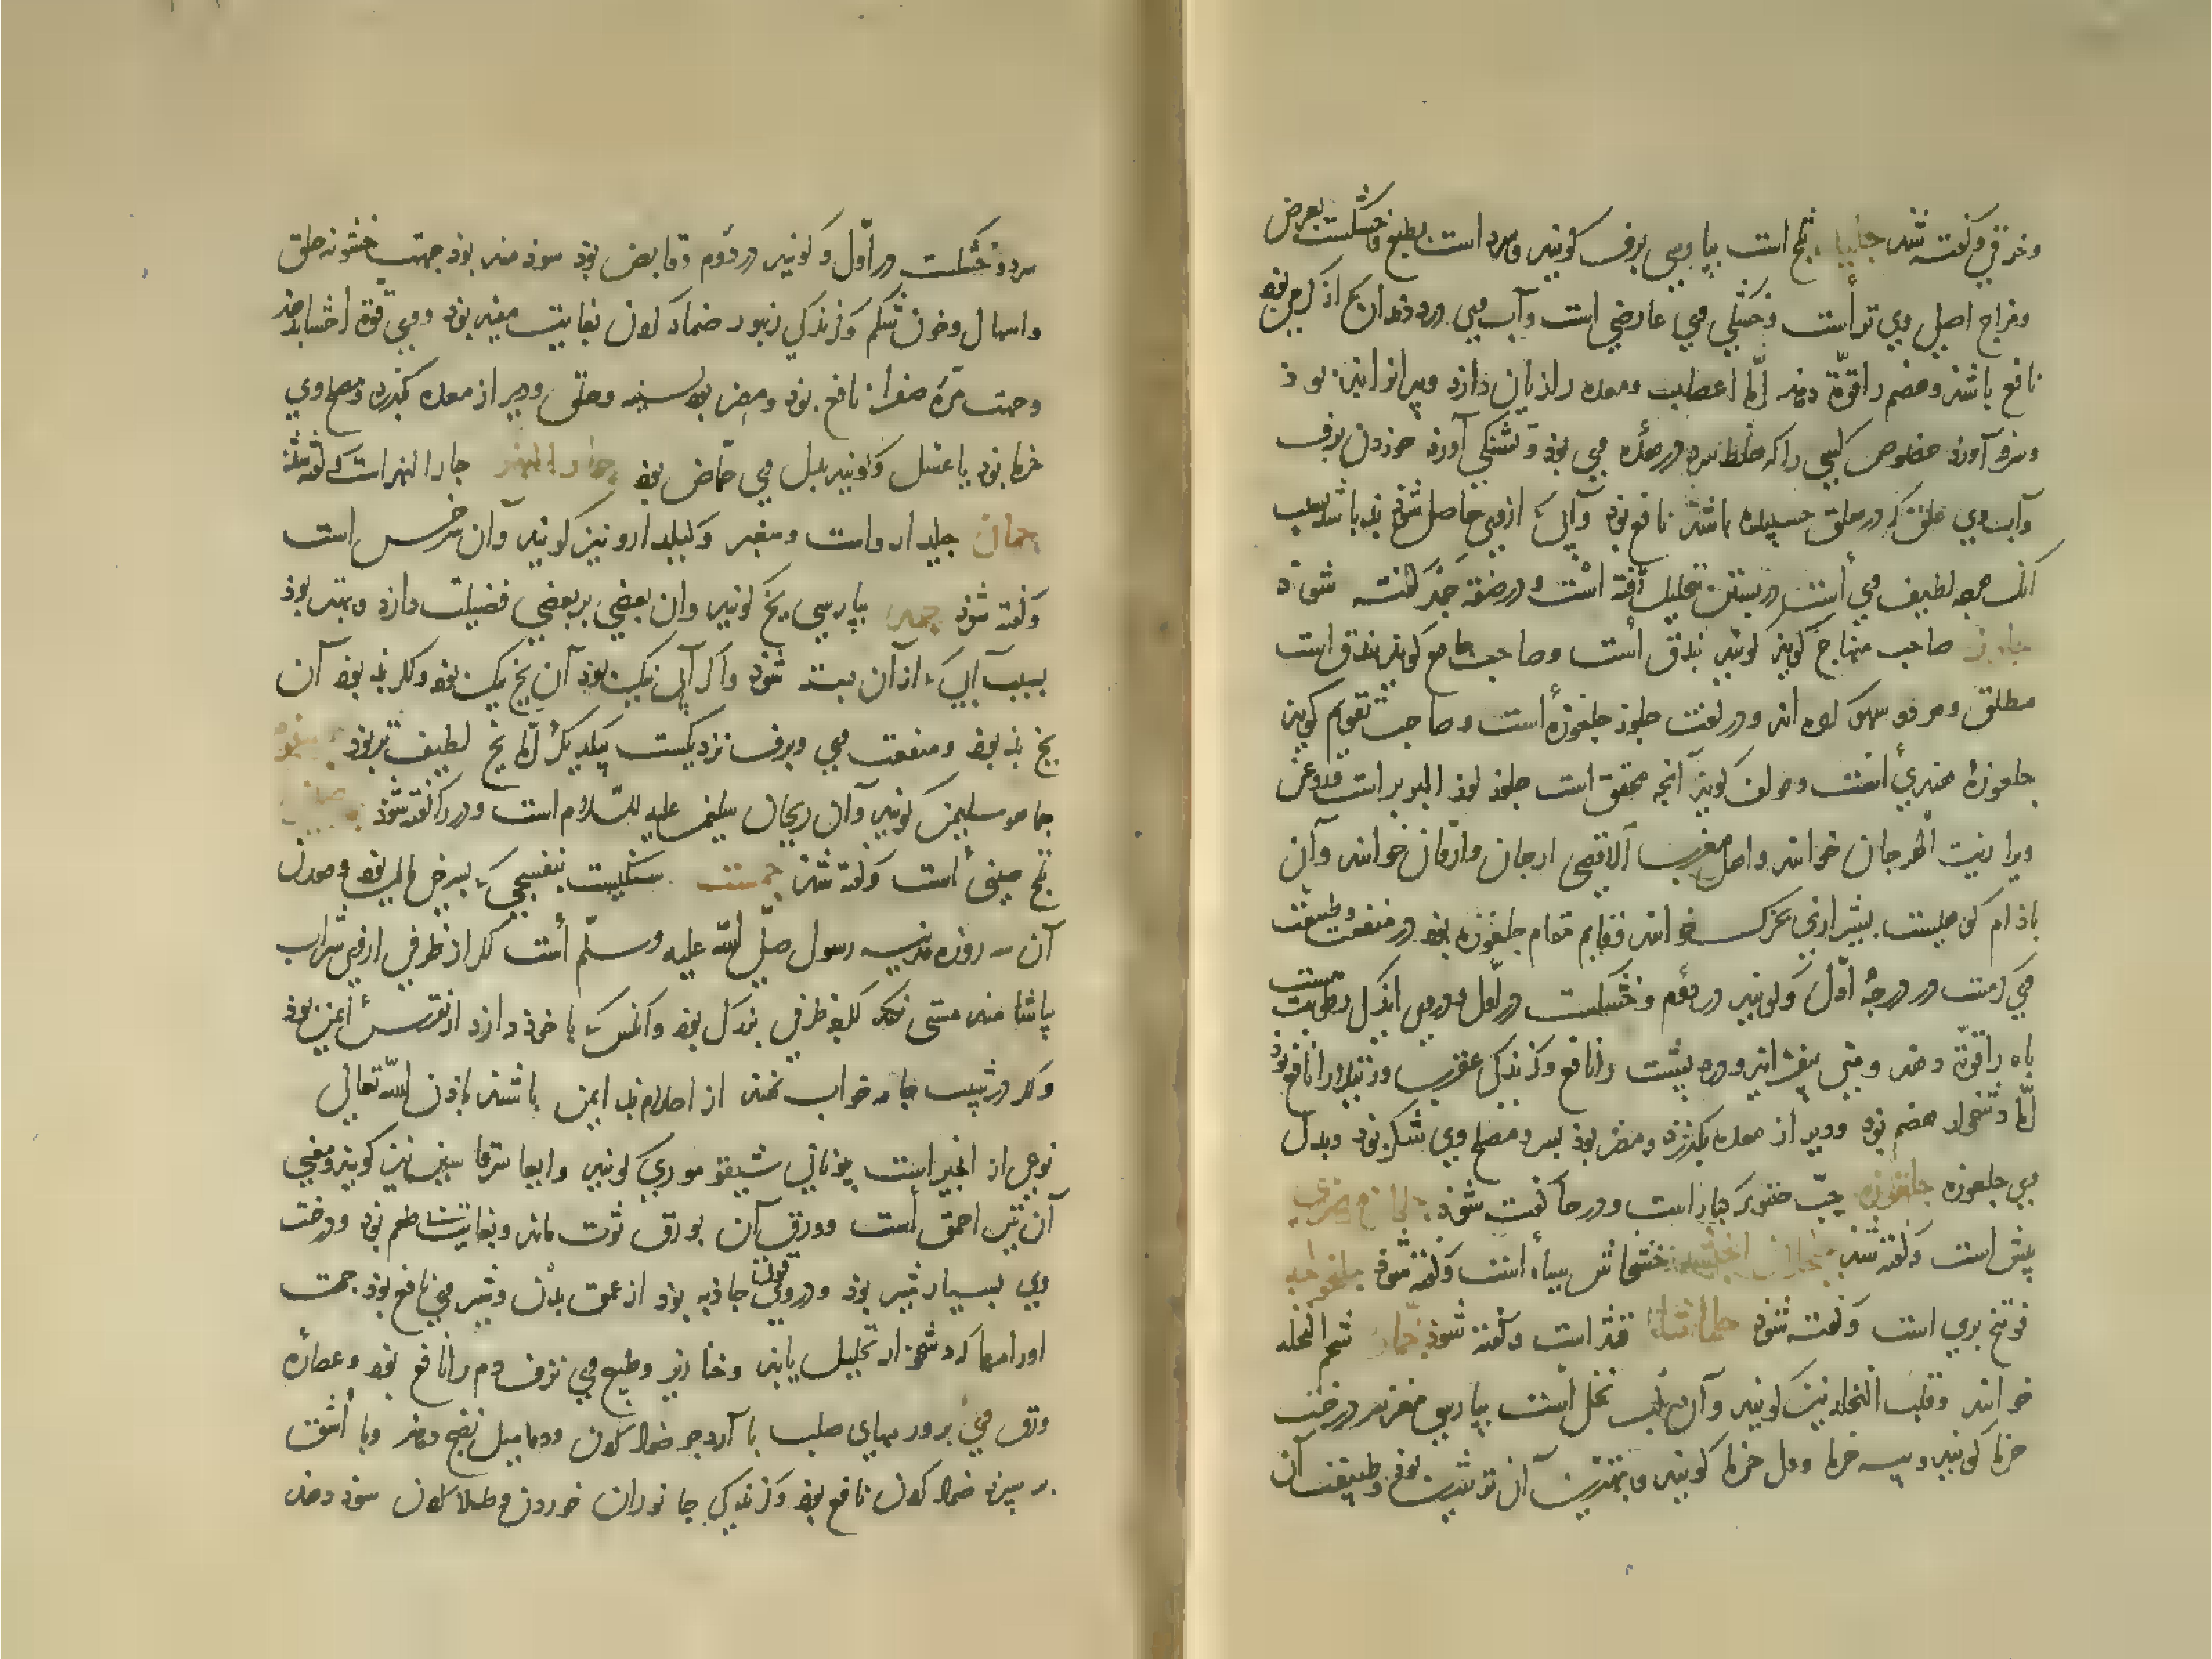 وخرقی وکفته شد جلید ثلج است بپارسی برف کویند و سرد است بطبع و خشکست بعرض
ومزاج اصلی وی تر است وخشکی وی عارضی است وآب وی درد دندان که از گرمی بود
نافع باشد وهضم را قوّة دهد امّا اعصاب ومعده را زیان دارد وپیرانرا
وسرفه آورد خصوص کسی را که خلط سرد در معده وی بود وتشنکی آورد خوردن برف
وآب وی علق که در حلق چسپیده باشد نافع بود وآبی که از وی حاصل شود بد باشد بسبب
آنک هرچه لطیف وی است در بستن تحلیل رفته است ودر صفة جمد کفته شود
جلوز صاحب منهاج کوید کویند بندق است وصاحب جامع کوید بندق است
مطلق وهر دو سهو کرده اند ودر لغت جلوز جلغوزه است وصاحب تقویم کوید
جلغوزهٔ هندی است ومولف کوید آنچه محقق است جلوز لوز البربر است
ویرا زیت الهرجان خوانند واهل مغرب الاقصی ارجان وارقان خوانند وآن
بادام کوهیست بشیرازی بخرک خوانند وقایم مقام جلغوزه بود در منفعت وطبیعت
وی کرمست در درجهٔ اوّل وکویند در دوّم وخشکست در اوّل ودر وی اندک رطوبت هست
باه را قوّة دهد ومنی بیفزاید ودرد پشت را نافع وکزندکی عقرب ورتیلا را نافع بود
امّا دشخوار هضم بود ودیر از معده بکذرد ومضر بود بسر ومصلح وی شکر بود وبدل
وی جلغوزه جلغوزه حبّ صنوبر کبار است ودر حا کفته شود
پیش است وکفته شد خشخاش سیاه است وکفته شود
فوتنج بری است وکفته شود قثد است وکفته شود جمّار شحم النخله
خوانند وقلب النخله نیز کویند وآن لب نخل است بپارسی مغز سر درخت
خرما کویند وپیه خرما ودل خرما کویند وبهترین آن تر شیرین بود وطبیعت آن
سرد وخشکست در اوّل وکویند در دوّم وقابض بود سودمند بود جهت خشونه حلق
واسهال وخون شکم وکزندکی زنبور ضماد کردن بغایت مفید بود ووی قوّة احشا بدهد
وجهت مرّة صفرا نافع بود ومضر بود بسینه وحلق ودیر از معده بکذرد ومصلح وی
خرما بود یا عسل وکویند بدل وی حمّاض بود جار النهر است که کفته شد
جلید ارو است ومغبر وکیلدارو نیز کویند وآن سرخس است
وکفته شود جمد بپارسی یخ کویند وآن بعضی بر بعضی فضیلت دارد وبهتر بود
بسبب آبی که از آن بسته شود واکر آب نیک بود آن یخ نیک بود وکر بد بود آن
یخ بد بود ومنفعت وی وبرف نزدیکست بیکدیکر امّا یخ لطیف تر بود
جماموسلیمن کویند وآن ریحان سلیمن علیه السّلام است ودر را کفته شود
ثلج صینی است وکفته شد جمست سنکیست بنفسجی که بسرخی مایل بود ومعدن
آن سه روزه مدینه رسول صلّی الله علیه وسلّم است کر از ظرفی از وی شراب
بیاشامند مستی نکند کر ظرفی بزرک بود وآنکس که با خود دارد از نقرس ایمن بود
وکر در شیب جامه خواب نهند از احلام بد ایمن باشند باذن الله تعالی
نوعی از انجیر است یونانی شیقو موری کویند نیز کویند
آن تین احمق است وورق آن بورق توت ماند طعم بود ودرخت
وی بسیار شیر بود ودر وی قوتی جاذبه بود از عمق بدن وشیر وی نافع بود جهت
اورامها که دشخوار تحلیل یابد وخنازیر وطبیخ وی نزف دم را نافع بود وعصارهٔ
ورق وی بر ورمهای صلب با آرد جو ضماد کردن ودمامیل نضج دهد وبا اشق
بر سپرز ضماد کردن نافع بود وکزندکی جانوران خوردن وطلا کردن سود دهد